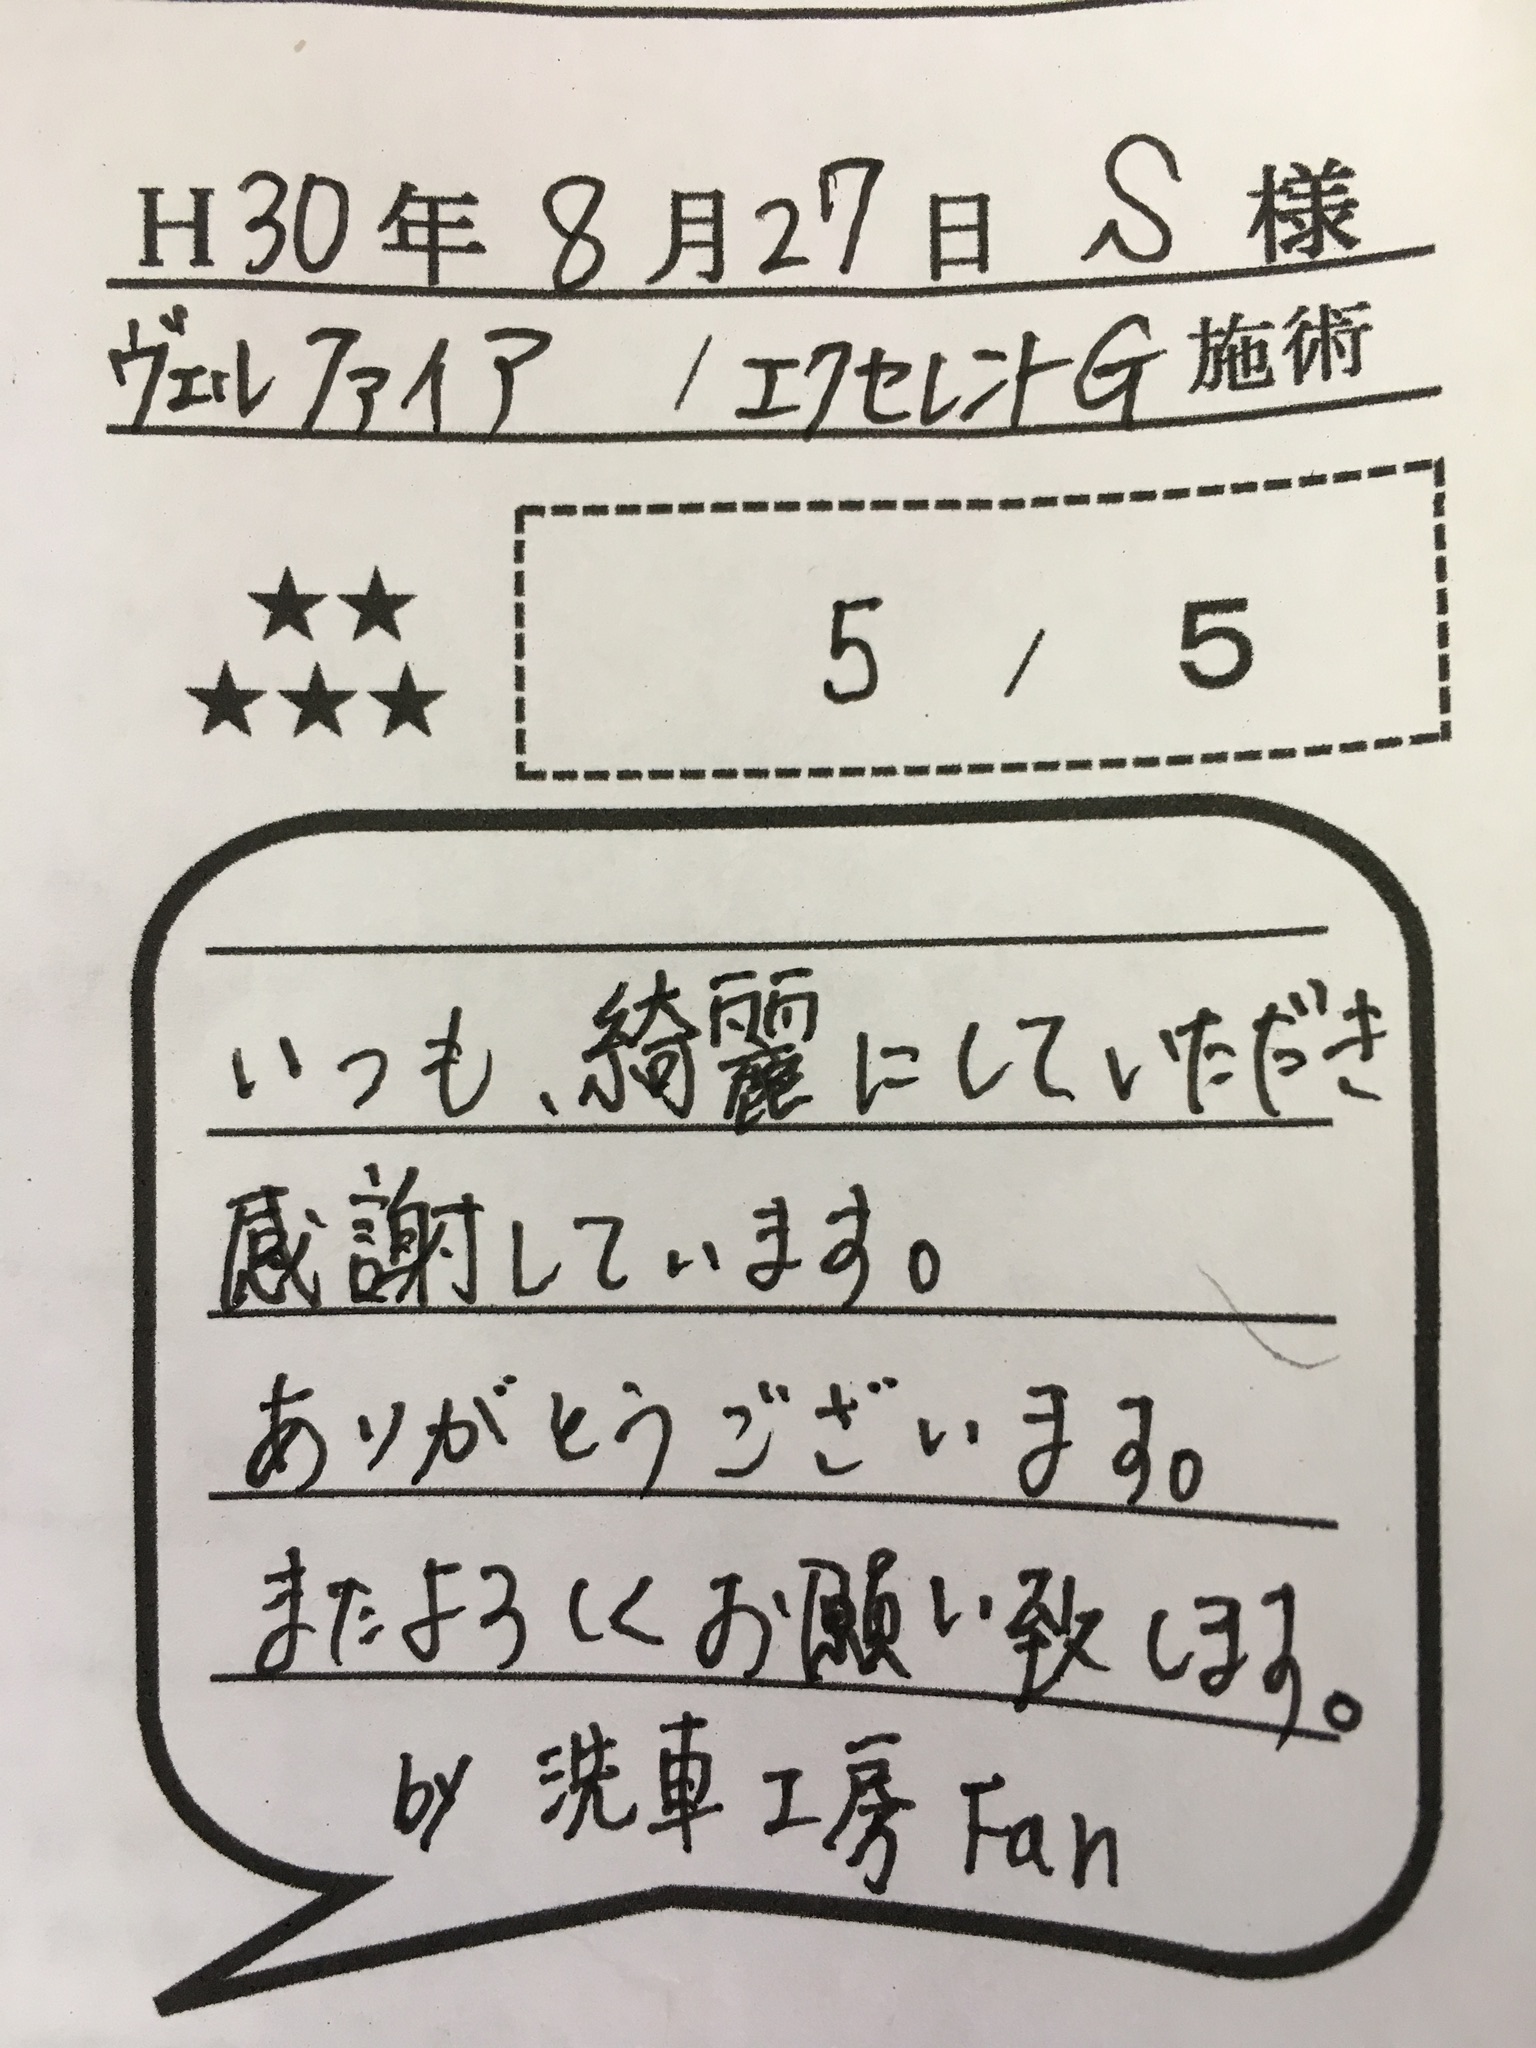 H30年 8月27日 S 様
ヴェルファイア / エクセレントG 施術
★★
★★★
5 / 5
いつも、綺麗にしていただき
感謝しています。
ありがとうございます。
またよろしくお願い致します。
by 洗車工房 Fan